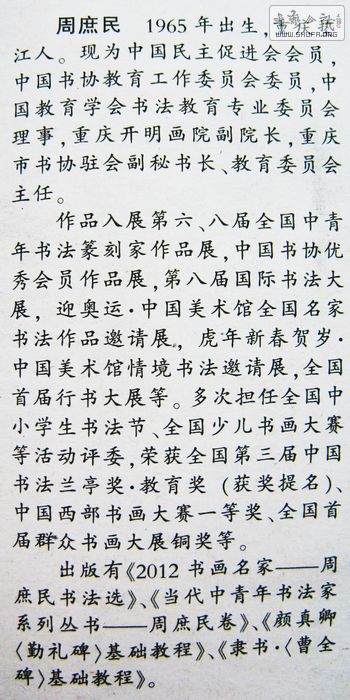 周庶民 1965年出生,重庆綦
江人。现为中国民主促进会会员,
中国书协教育工作委员会委员,中
国教育学会书法教育专业委员会
理事,重庆开明画院副院长,重庆
市书协驻会副秘书长、教育委员会
主任。
作品入展第六、八届全国中青
年书法篆刻家作品展,中国书协优
秀会员作品展,第八届国际书法大
展,迎奥运·中国美术馆全国名家
书法作品邀请展,虎年新春贺岁·
中国美术馆情境书法邀请展,全国
首届行书大展等。多次担任全国中
小学生书法节、全国少儿书画大赛
等活动评委,荣获全国第三届中国
书法兰亭奖·教育奖(获奖提名)、
中国西部书画大赛一等奖、全国首
届群众书画大展铜奖等。
出版有《2012书画名家——周
庶民书法选》、《当代中青年书法家
系列丛书——周庶民卷》、《颜真卿
〈勤礼碑〉基础教程》、《隶书·〈曹全
碑〉基础教程》。
WWW.SHUFA.ORG